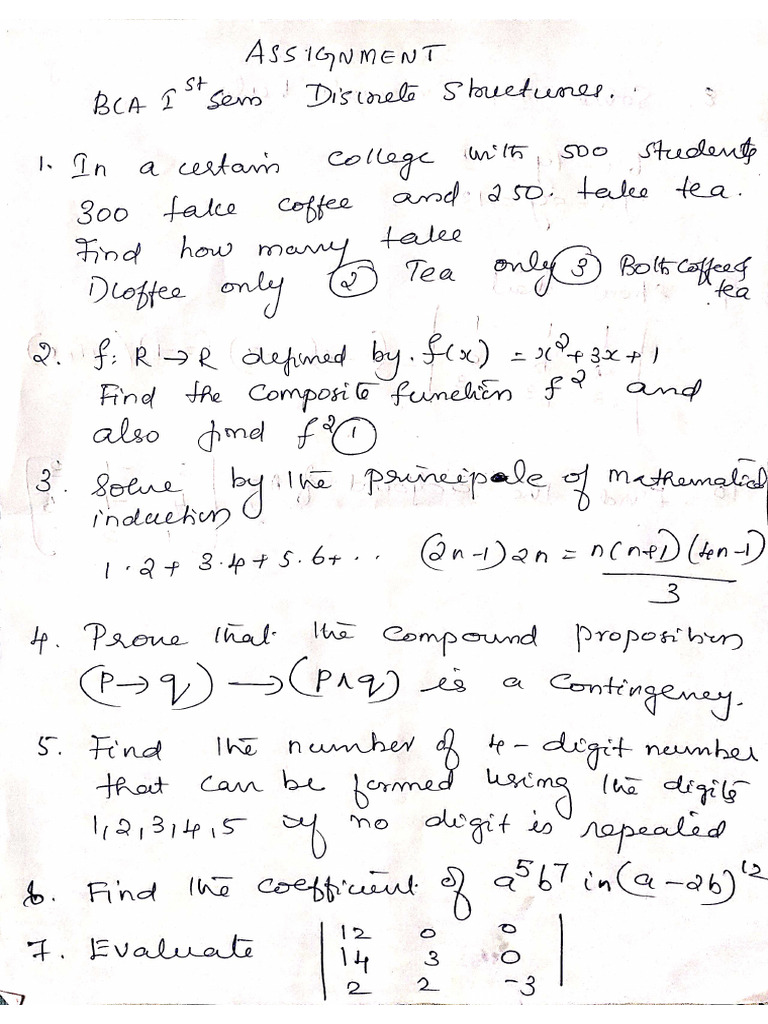 ASSIGNMENT
BCA I st Sem Discrete Structures.
1. In a certain college with 500 students
300 take coffee and 250. take tea.
Find how many take
1) Coffee only ② Tea only ③ Both coffee &
tea
2. f: R → R defined by. f(x) = x² + 3x + 1
Find the Composite function f² and
also find f² ①
3. Solve by the principle of mathematical
induction
1·2 + 3·4 + 5·6 + ·· (2n-1) 2n = n(n+1)(4n-1)
3
4. Prove that the compound proposition
(P → q) → (P ∧ q) is a Contingency.
5. Find the number of 4-digit number
that can be formed using the digits
1,2,3,4,5 if no digit is repeated
6. Find the coefficient of a⁵b⁷ in (a-2b)¹²
7. Evaluate | 12 0 0 |
14 3 0
2 2 -3